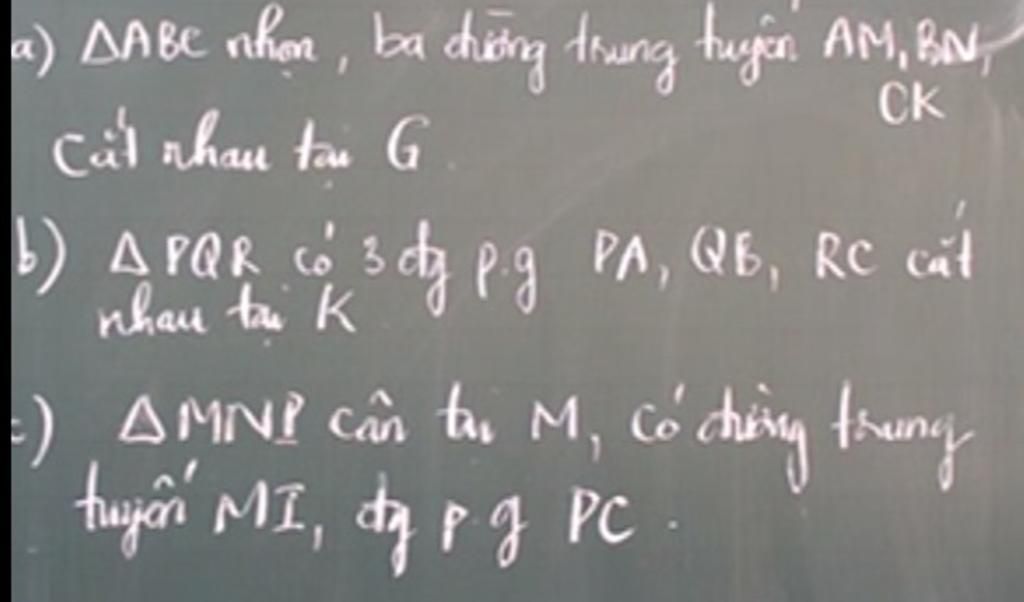 a) ΔABC nhọn, ba đường trung tuyến AM, BN,
CK
cắt nhau tại G.
b) ΔPQR có 3 đg p.g PA, QB, RC cắt
nhau tại K
c) ΔMNP cân tại M, có đường trung
tuyến MI, đg p.g PC.